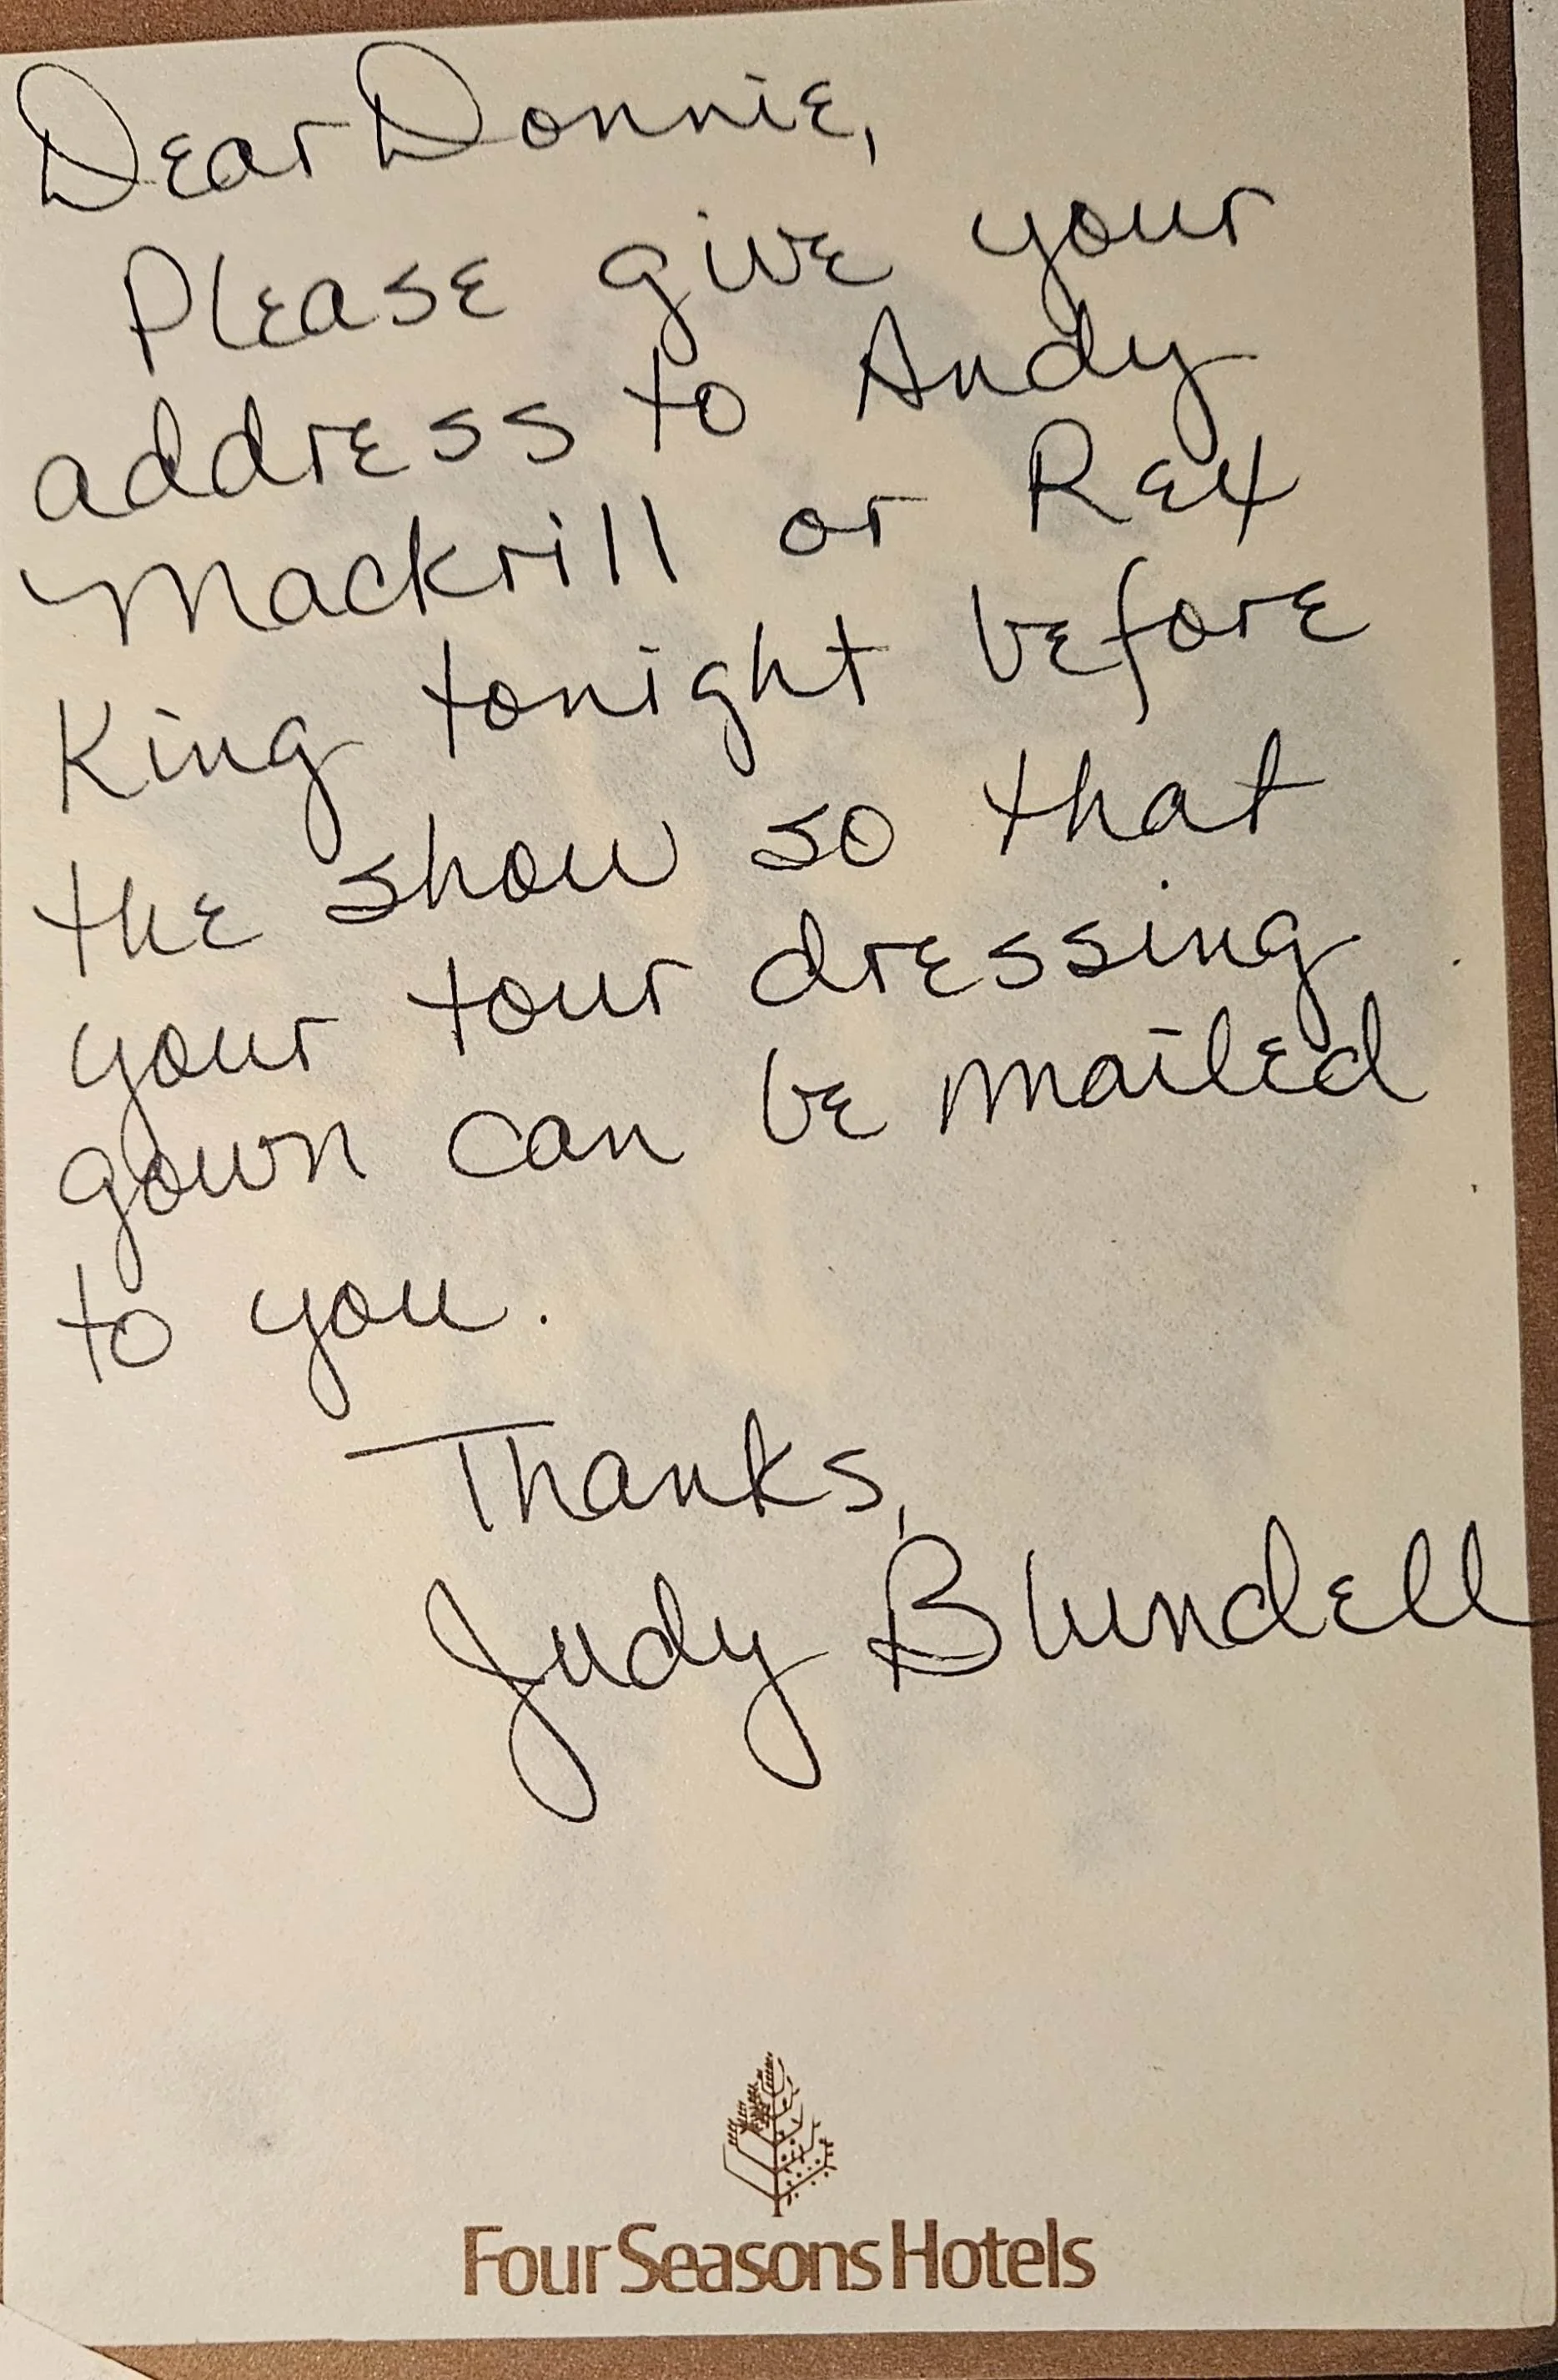 Dear Donnie,
Please give your
address to Andy
Mackrill or Rex
King tonight before
the show so that
your tour dressing
gown can be mailed
to you.
Thanks,
Judy Blundell
Four Seasons Hotels